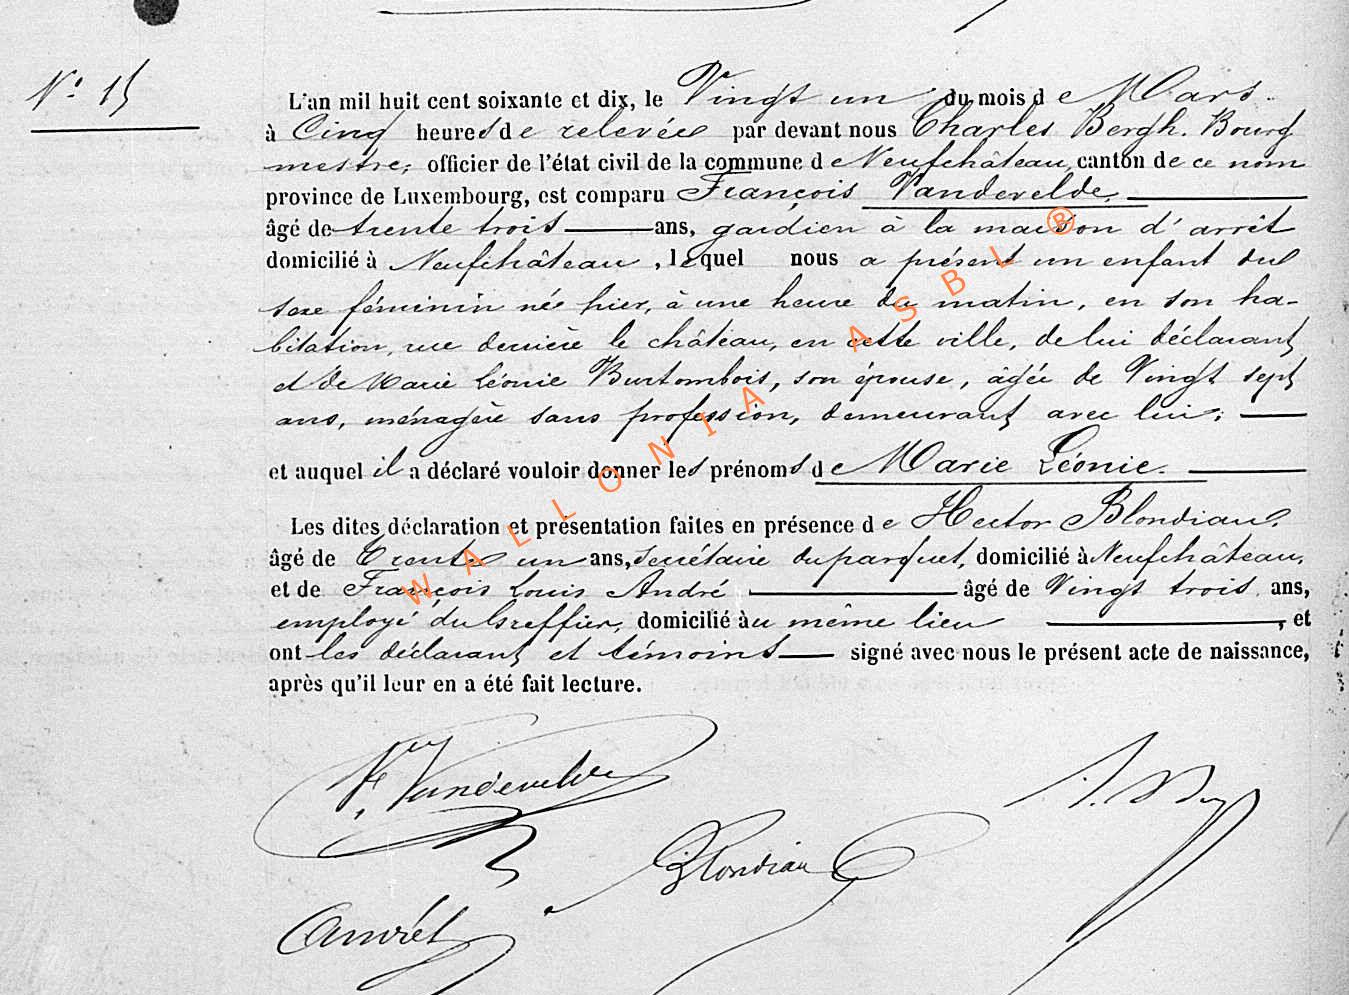 N° 15
L'an mil huit cent soixante et dix, le Vingt un du mois de Mars
à Cinq heures de relevée par devant nous Charles Bergh. Bourg
mestre, officier de l'état civil de la commune de Neufchâteau, canton de ce nom
province de Luxembourg, est comparu François Vandevelde,
âgé de trente trois ans, gardien à la maison d'arrêt
domicilié à Neufchâteau, lequel nous a présenté un enfant du
sexe féminin né hier, à une heure du matin, en son ha-
bitation, rue derrière le château, en cette ville, de lui déclarant
et de Marie Léonie Burtombois, son épouse, âgée de Vingt sept
ans, ménagère sans profession, demeurant avec lui;
et auquel il a déclaré vouloir donner les prénoms de Marie Léonie.
Les dites déclaration et présentation faites en présence de Hector Blondiau,
âgé de Trente un ans, secrétaire du parquet, domicilié à Neufchâteau,
et de François Louis André âgé de Vingt trois ans,
employé du Greffier, domicilié au même lieu, et
ont les déclarant et témoins signé avec nous le présent acte de naissance,
après qu'il leur en a été fait lecture.
F. Vandevelde
Blondiau
WALLONIA ASBL ®